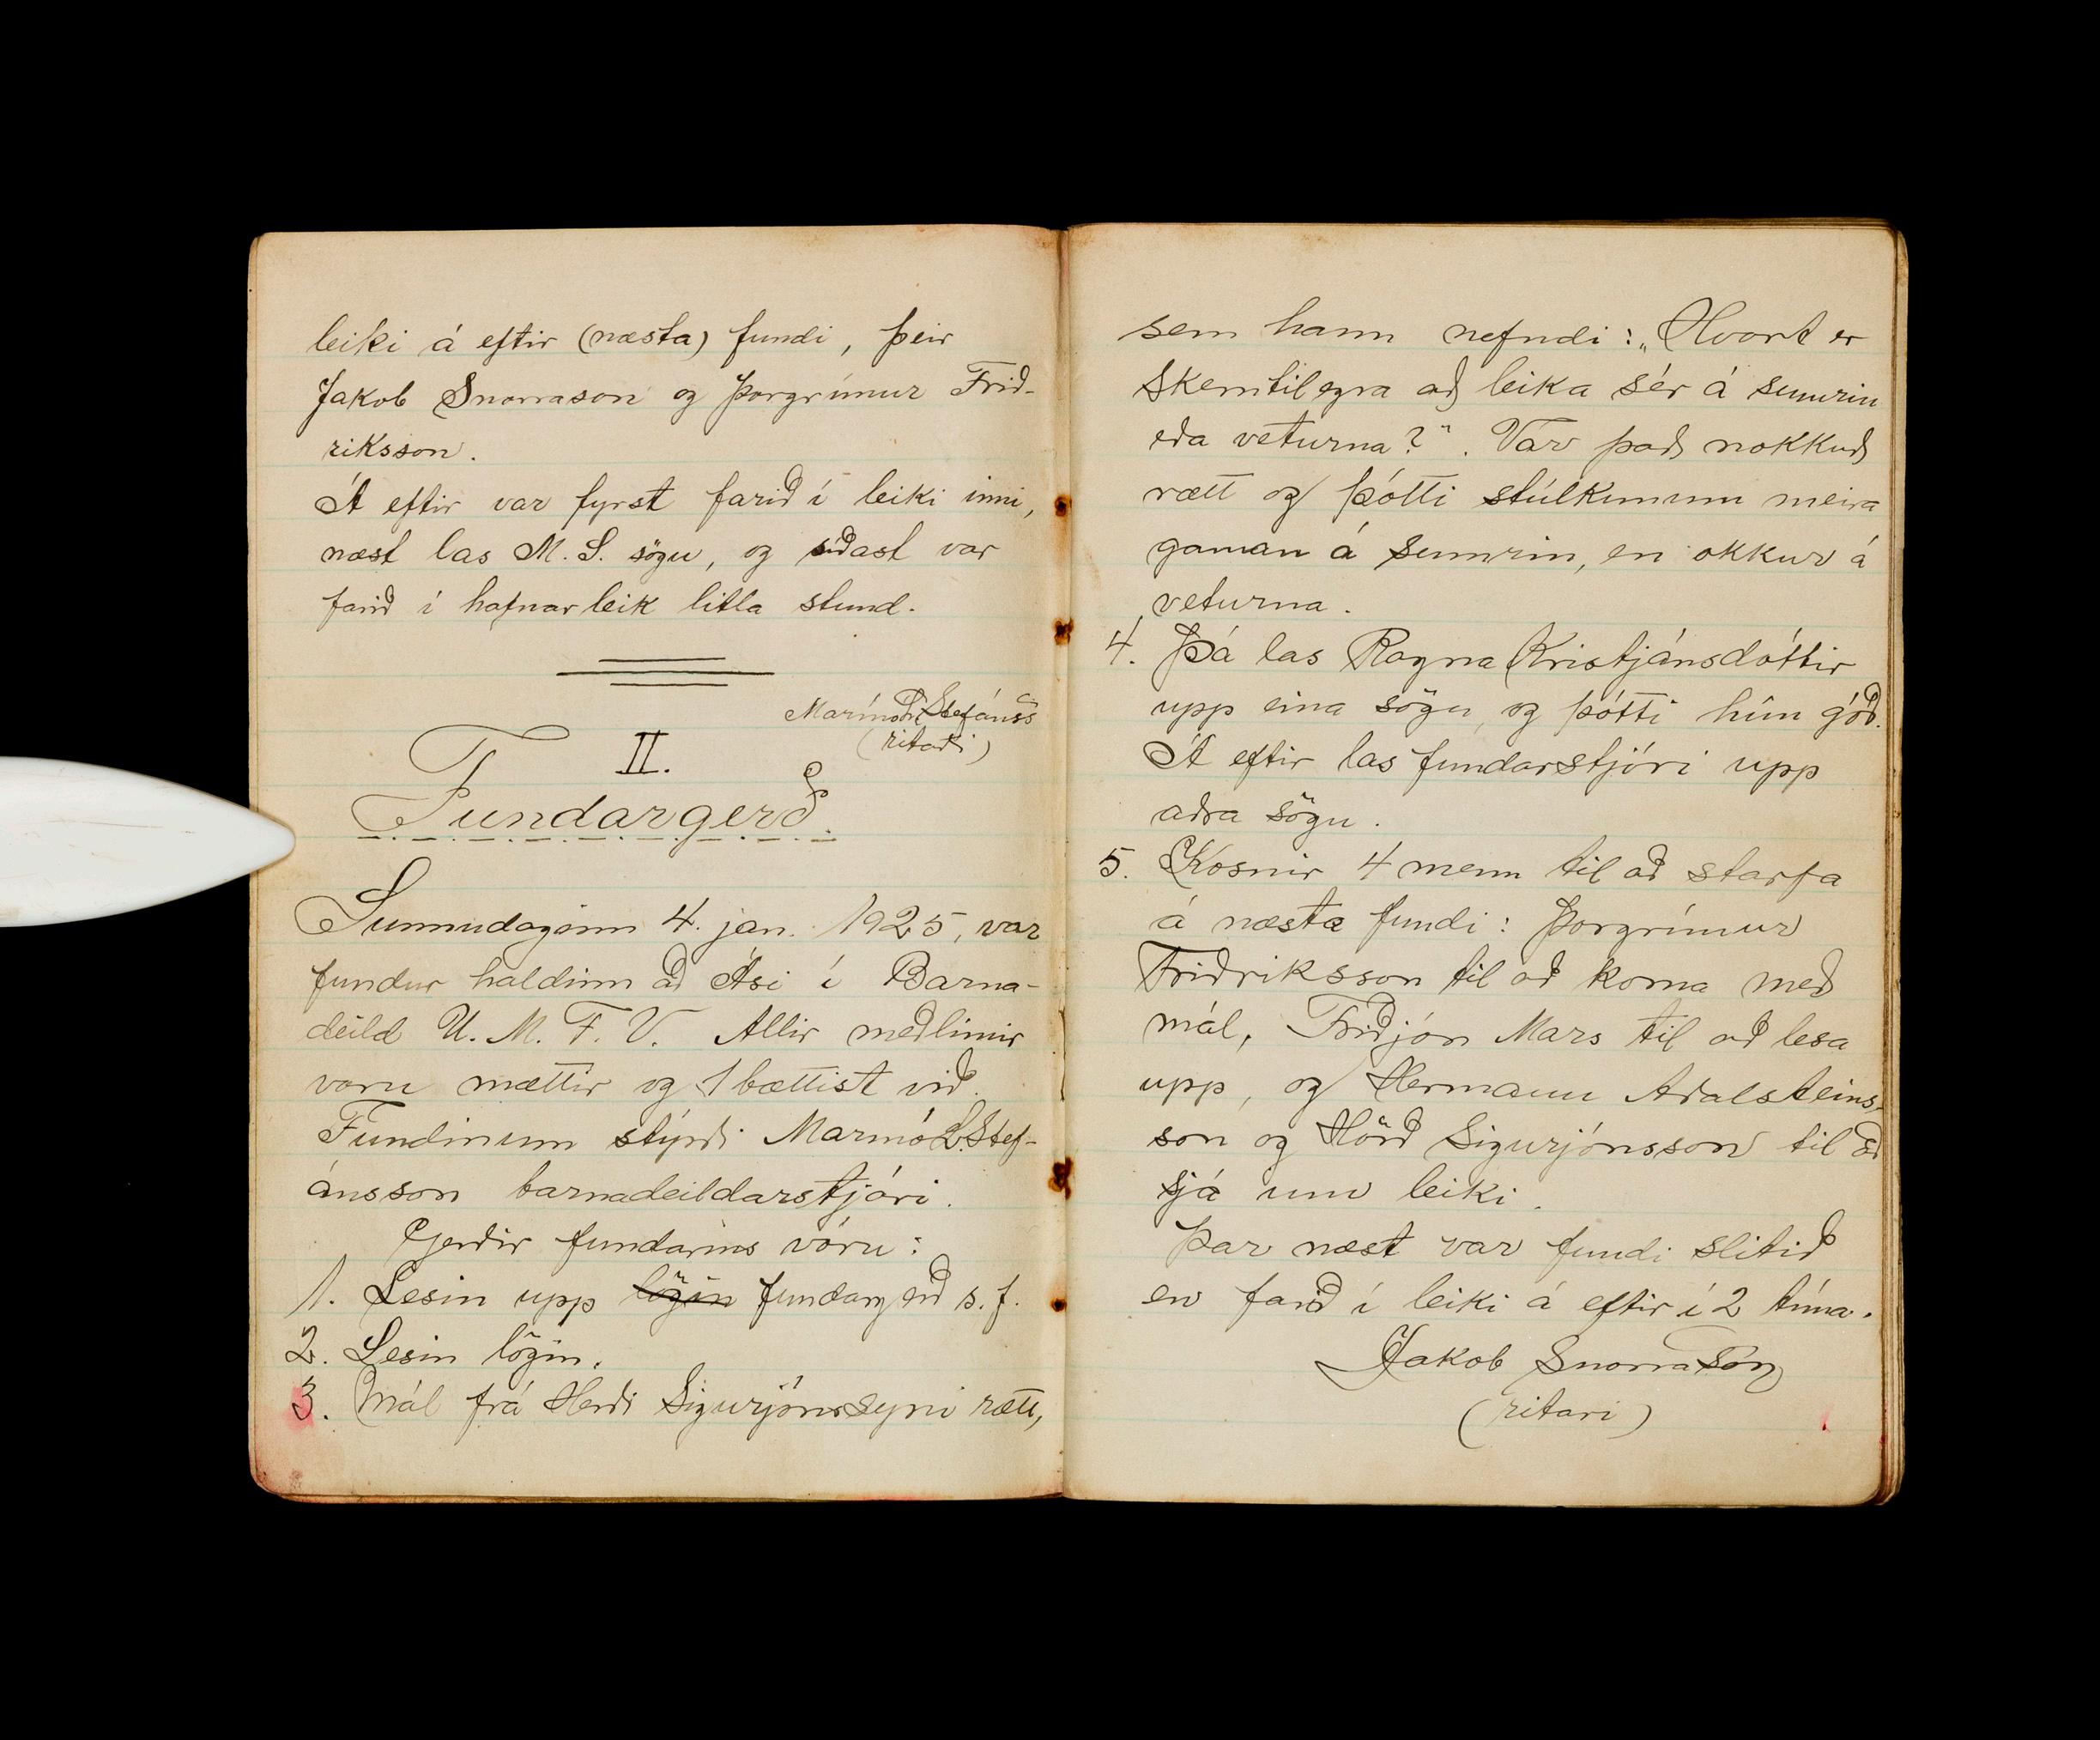 leiki á eftir (næsta) fundi, þeir
Jakob Snorrason og Þorgrímur Frið-
riksson.
Á eftir var fyrst farið í leiki inni,
næst las M. S. sögu, og síðast var
farið í hafnarleik litla stund.
Marínó L. Stefánss
(ritari)
II.
Fundargerð.
Sunnudaginn 4. jan. 1925, var
fundur haldinn að Ási í Barna-
deild U. M. F. V. Allir meðlimir
voru mættir og 1 bættist við.
Fundinum stýrði Marinó L. Stef-
ánsson barnadeildarstjóri.
Gjerðir fundarins vóru:
1. Lesin upp lögin fundargerð s. f.
2. Lesin lögin.
3. Mál frá Herði Sigurjónssyni rætt,
sem hann nefndi: „Hvort er
skemtilegra að leika sér á sumrin
eða veturna?". Var það nokkuð
rætt og þótti stúlkunum meira
gaman á sumrin, en okkur á
veturna.
4. Þá las Ragna Kristjánsdóttir
upp eina sögu, og þótti hún góð.
Á eftir las fundarstjóri upp
aðra sögu.
5. Kosnir 4 menn til að starfa
á næsta fundi: Þorgrímur
Friðriksson til að koma með
mál, Friðjón Mars til að lesa
upp, og Hermann Aðalsteins-
son og Hörð Sigurjónsson til að
sjá um leiki.
Þar næst var fundi slitið
en farið í leiki á eftir í 2 tíma.
Jakob Snorrason
(ritari)